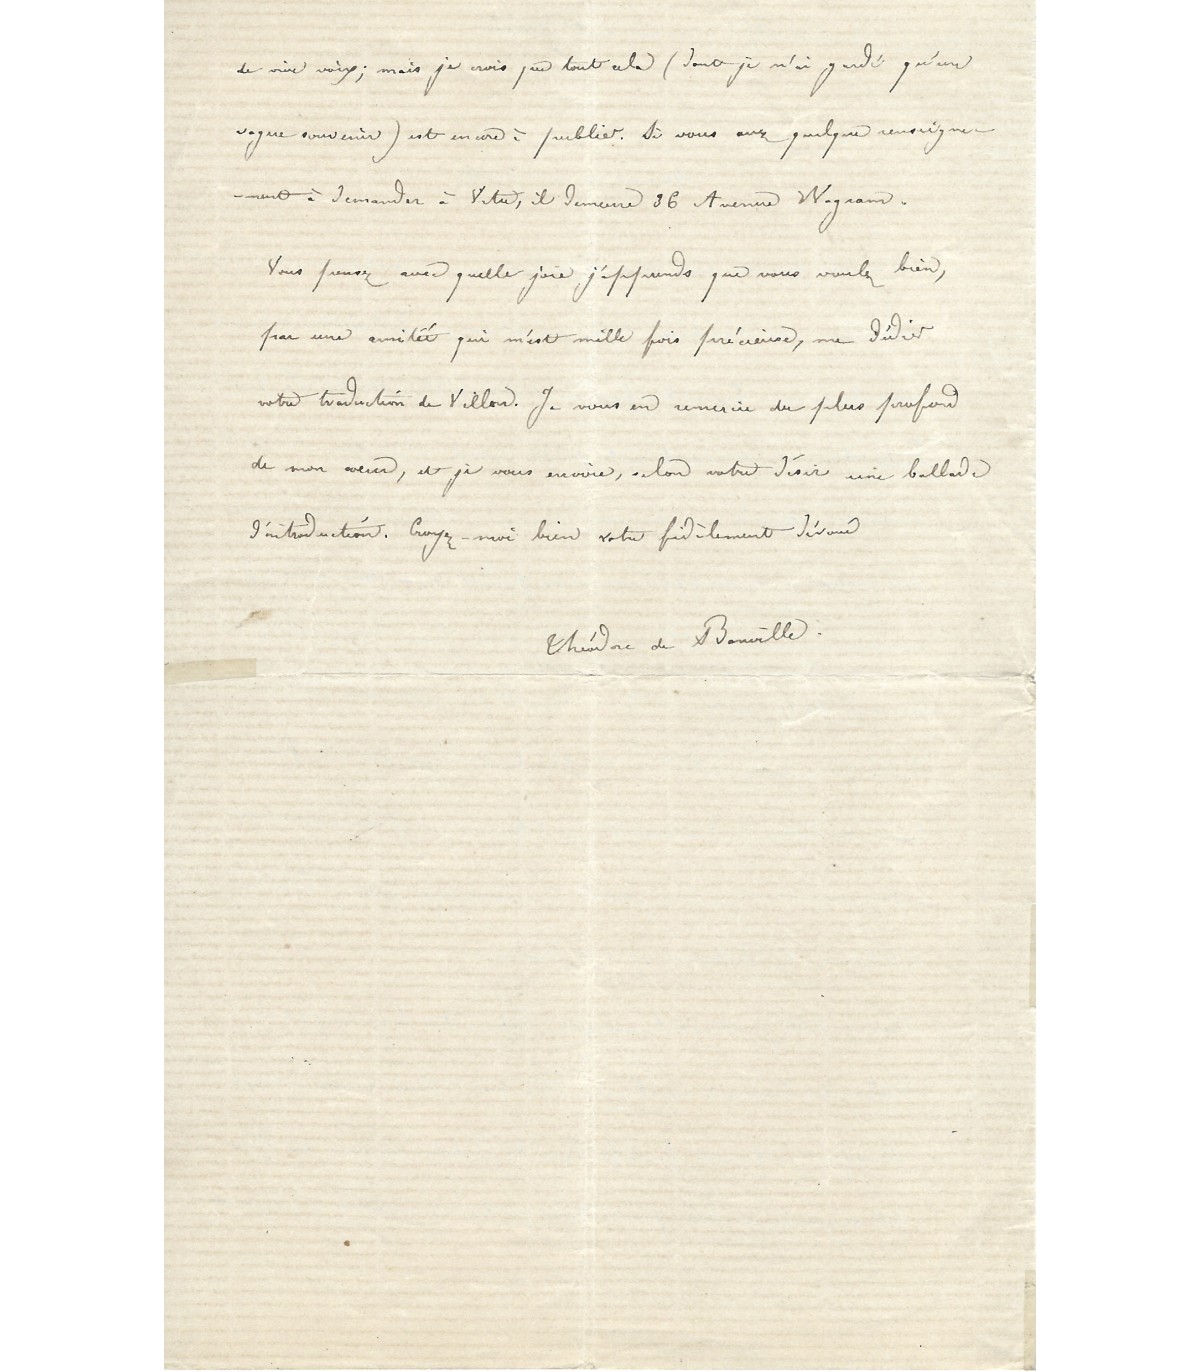 de vive voix; mais je crois que tout cela (dont je n'ai gardé qu'un
vague souvenir) est encore à publier. Si vous avez quelque renseigne-
-ment à demander à Vitu, il demeure 36 Avenue Wagram.
Vous pensez avec quelle joie j'apprends que vous voulez bien,
par une amitié qui m'est mille fois précieuse, me dédier
votre traduction de Villon. Je vous en remercie du plus profond
de mon coeur, et je vous envoie, selon votre désir une ballade
d'introduction. Croyez-moi bien votre fidèlement dévoué
Théodore de Banville.